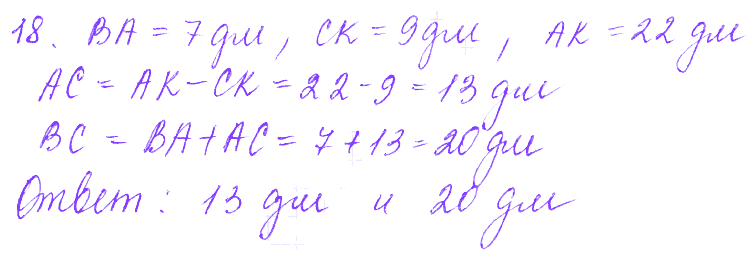 18. BA = 7 дм, CK = 9 дм, AK = 22 дм
AC = AK − CK = 22 - 9 = 13 дм
BC = BA + AC = 7 + 13 = 20 дм
Ответ: 13 дм и 20 дм